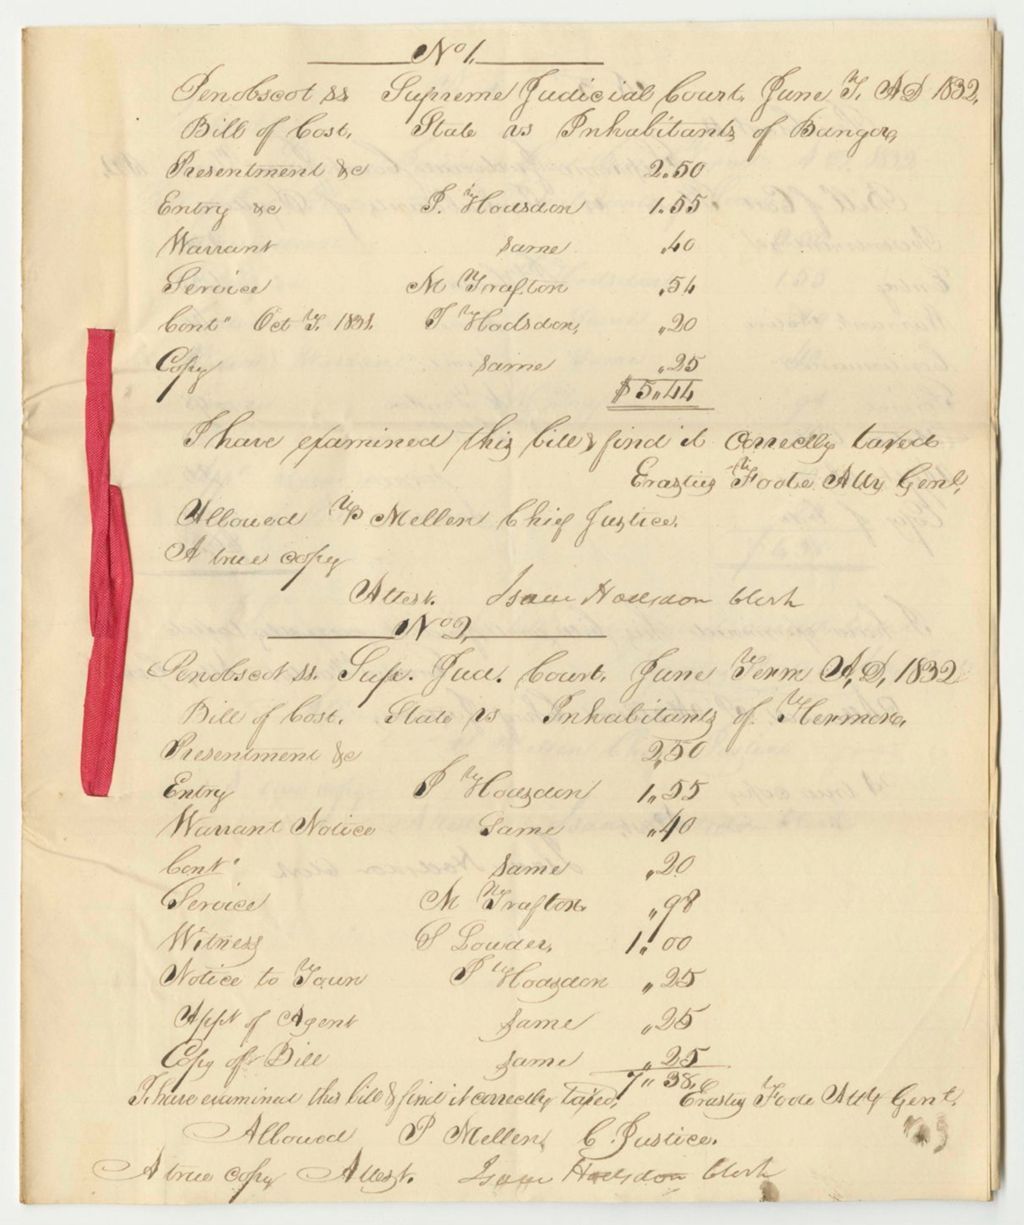 No 1.
Penobscot ss Supreme Judicial Court June T. AD 1832.
Bill of Cost. State vs Inhabitants of Bangor,
Presentment &c 2.50
Entry &c I. Hodsdon 1.55
Warrant same .40
Service M Trafton .54
Cont" Oct T. 1831. I Hodsdon, .20
Copy same .25
$5.44
I have examined this bill & find it correctly taxed
Erastus Foote Atty Genl.
Allowed P Mellen Chief Justice.
A true copy
Attest. Isaac Hodsdon Clerk
No 2,
Penobscot ss. Sup. Jud. Court. June Term A,D, 1832
Bill of Cost. State vs Inhabitants of Hermon.
Presentment &c 2,50
Entry I Hodsdon 1,,55
Warrant Notice Same ,,40
Cont' same ,20
Service M Trafton. ,,98
Witness S Louder, 1,,00
Notice to Town I Hodsdon ,,25
Appt of Agent same ,,25
Copy of Bill same ,,25
7,,38.
I have examined this bill & find it correctly taxed, Erastus Foote Atty Genl.
Allowed P Mellen, C. Justice.
A true copy Attest. Isaac Hodsdon Clerk